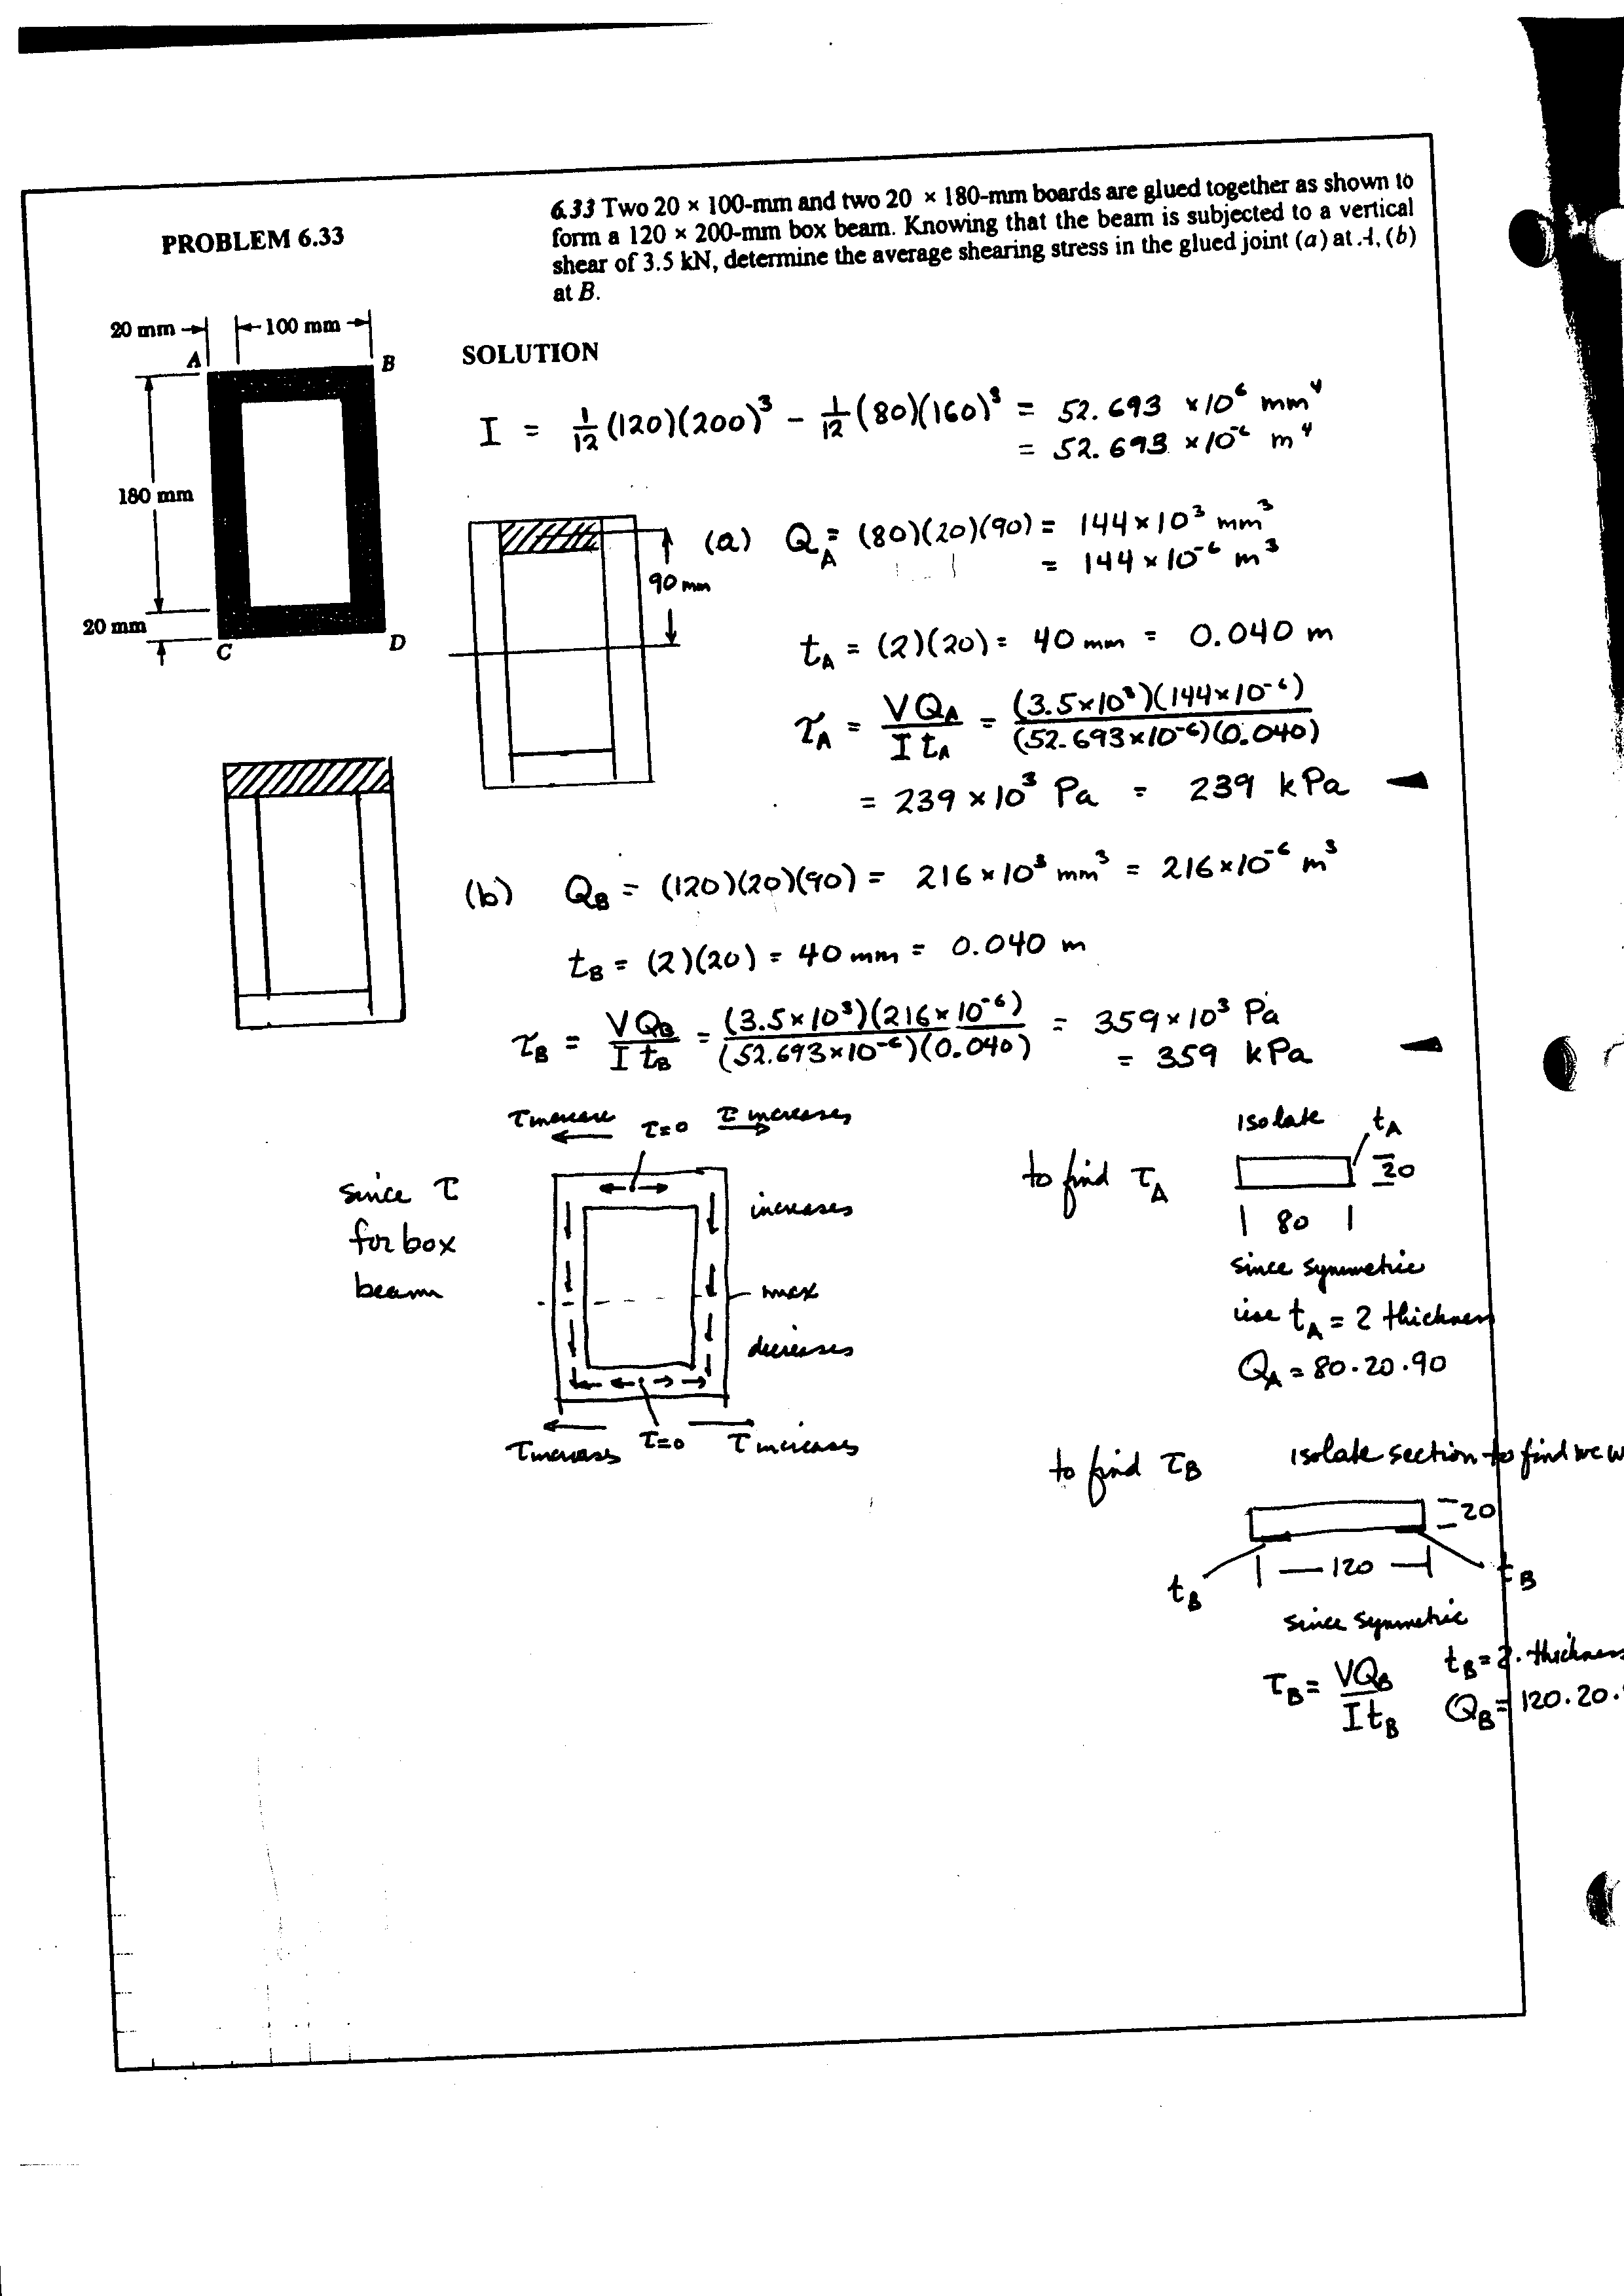 PROBLEM 6.33
6.33 Two 20 × 100-mm and two 20 × 180-mm boards are glued together as shown to
form a 120 × 200-mm box beam. Knowing that the beam is subjected to a vertical
shear of 3.5 kN, determine the average shearing stress in the glued joint (a) at A, (b)
at B.
20 mm 100 mm
A B
180 mm
20 mm
C D
SOLUTION
I = 1/12 (120)(200)³ - 1/12 (80)(160)³ = 52.693 ×10⁶ mm⁴
= 52.693 ×10⁻⁶ m⁴
90 mm
(a) Q_A = (80)(20)(90) = 144×10³ mm³
= 144×10⁻⁶ m³
t_A = (2)(20) = 40 mm = 0.040 m
τ_A = VQ_A / I t_A = (3.5×10³)(144×10⁻⁶) / (52.693×10⁻⁶)(0.040)
= 239×10³ Pa = 239 kPa
(b) Q_B = (120)(20)(90) = 216×10³ mm³ = 216×10⁻⁶ m³
t_B = (2)(20) = 40 mm = 0.040 m
τ_B = VQ_B / I t_B = (3.5×10³)(216×10⁻⁶) / (52.693×10⁻⁶)(0.040) = 359×10³ Pa
= 359 kPa
since τ
for box
beam
τ increase τ=0 τ increases
increases
max
decreases
τ increases τ=0 τ increases
to find τ_A
isolate t_A
20
80
since symmetric
use t_A = 2 thickness
Q_A = 80·20·90
to find τ_B isolate section to find we w
20
t_B 120 t_B
since symmetric
τ_B = VQ_B / I t_B
t_B = 2·thickness
Q_B = 120·20·